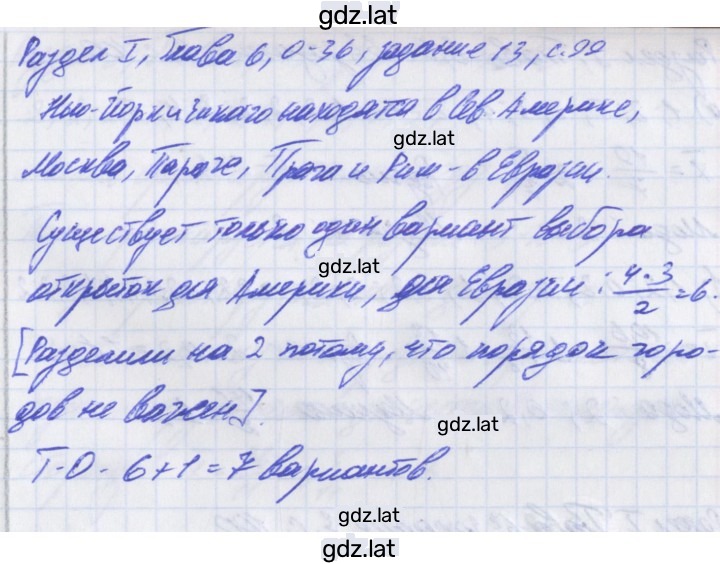 gdz.lat
Раздел I, Глава 6, О-36, задание 13, с.99
Нью-Йорк и Чикаго находятся в Сев. Америке,
gdz.lat
Москва, Париж, Прага и Рим - в Евразии.
Существует только один вариант выбора
gdz.lat
открыток для Америки, для Евразии: 4·3/2=6.
[Разделили на 2 потому, что порядок горо-
дов не важен].
gdz.lat
Т-О- 6+1=7 вариантов.
gdz.lat
gdz.lat